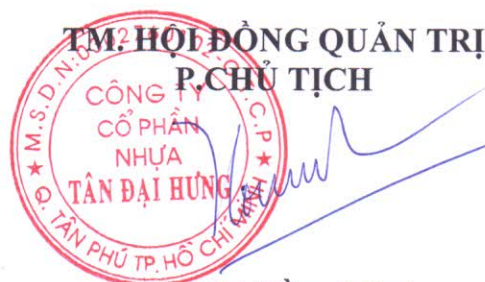 TM. HỘI ĐỒNG QUẢN TRỊ
P.CHỦ TỊCH
CÔNG TY
CỔ PHẦN
NHỰA
TÂN ĐẠI HƯNG
Q. TÂN PHÚ TP. HỒ CHÍ MINH